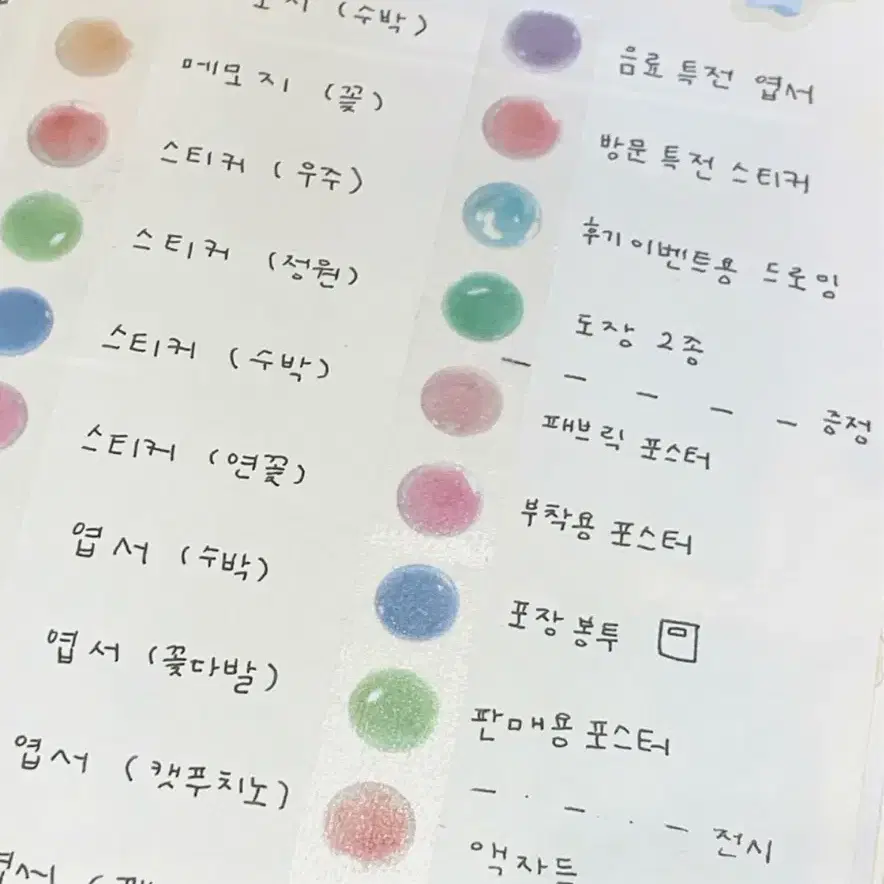 (수박)
메모지 (꽃)
스티커 (우주)
스티커 (정원)
스티커 (수박)
스티커 (연꽃)
엽서 (수박)
엽서 (꽃다발)
엽서 (캣푸치노)
음료 특전 엽서
방문 특전 스티커
후기이벤트용 드로잉
도장 2종
— — — — — 증정
패브릭 포스터
부착용 포스터
포장봉투
판매용 포스터
— · — · — 전시
액자